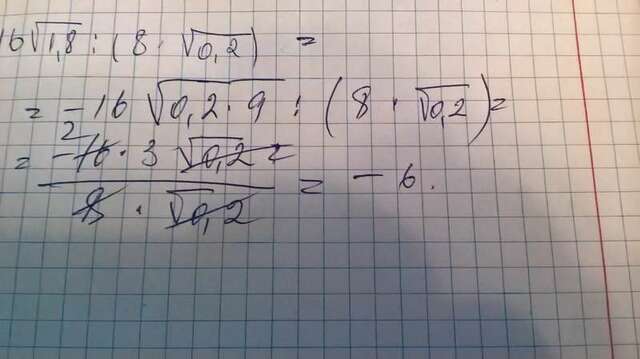 16√1,8 : (8 · √0,2) =
= -16 √0,2·9 : (8 · √0,2) =
= -16 · 3 √0,2 / 8 · √0,2 = -6.
2